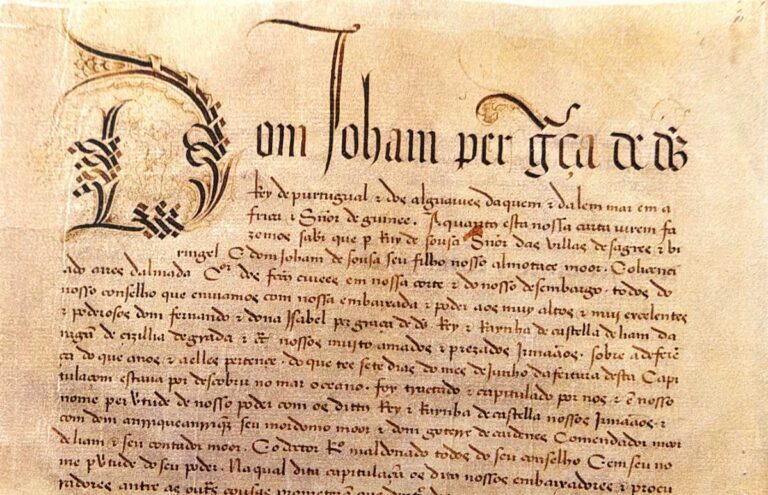 Dom Joham per gͬça de ds
Rey de purtugual ⁊ dos algarues daquem ⁊ dalem mar em a
frica ⁊ Sñor de guinee. A quantos esta nossa carta virem fa
zemos saber que per Ruy de sousa Sñor das villas de sagres ⁊ bi
ringel E dom Joham de sousa seu filho nosso almotace moor. E o licenci
ado aires dalmada dos em nossa corte ⁊ do nosso desembargo. todos do
nosso conselho que enuiamos com nossa embaixada ⁊ poder aos muy altos ⁊ mui excelentes
⁊ poderosos dom fernando ⁊ dona Isabel per graça de ds Rey ⁊ Raynha de castella de liam da
de cizillia de grada ⁊ nossos muito amados ⁊ prezados Irmaãos. sobre a deferẽ
ça do que a nos ⁊ a elles pertence. do que tee sete dias do mes de Junho da feitura desta Capi
tulaçom estaua por descobrir no mar oceano. foy tractado ⁊ capitulado por nos ⁊ ẽ nosso
nome per vͭtude de nosso poder com os dittos Rey ⁊ Raynha de castella nossos Irmaãos. ⁊
com dom anrrique anrriquez seu mordomo moor ⁊ dom goterre de cardenes Comendador moor
de liam ⁊ seu contador moor. E o doctor Rͦ maldonado todos do seu conselho E em seu no
me p vͭtude do seu poder. Na qual ditta capitulaçã os dittos nossos embaixadores ⁊ procu
radores antre as outͬas cousas prometerã que